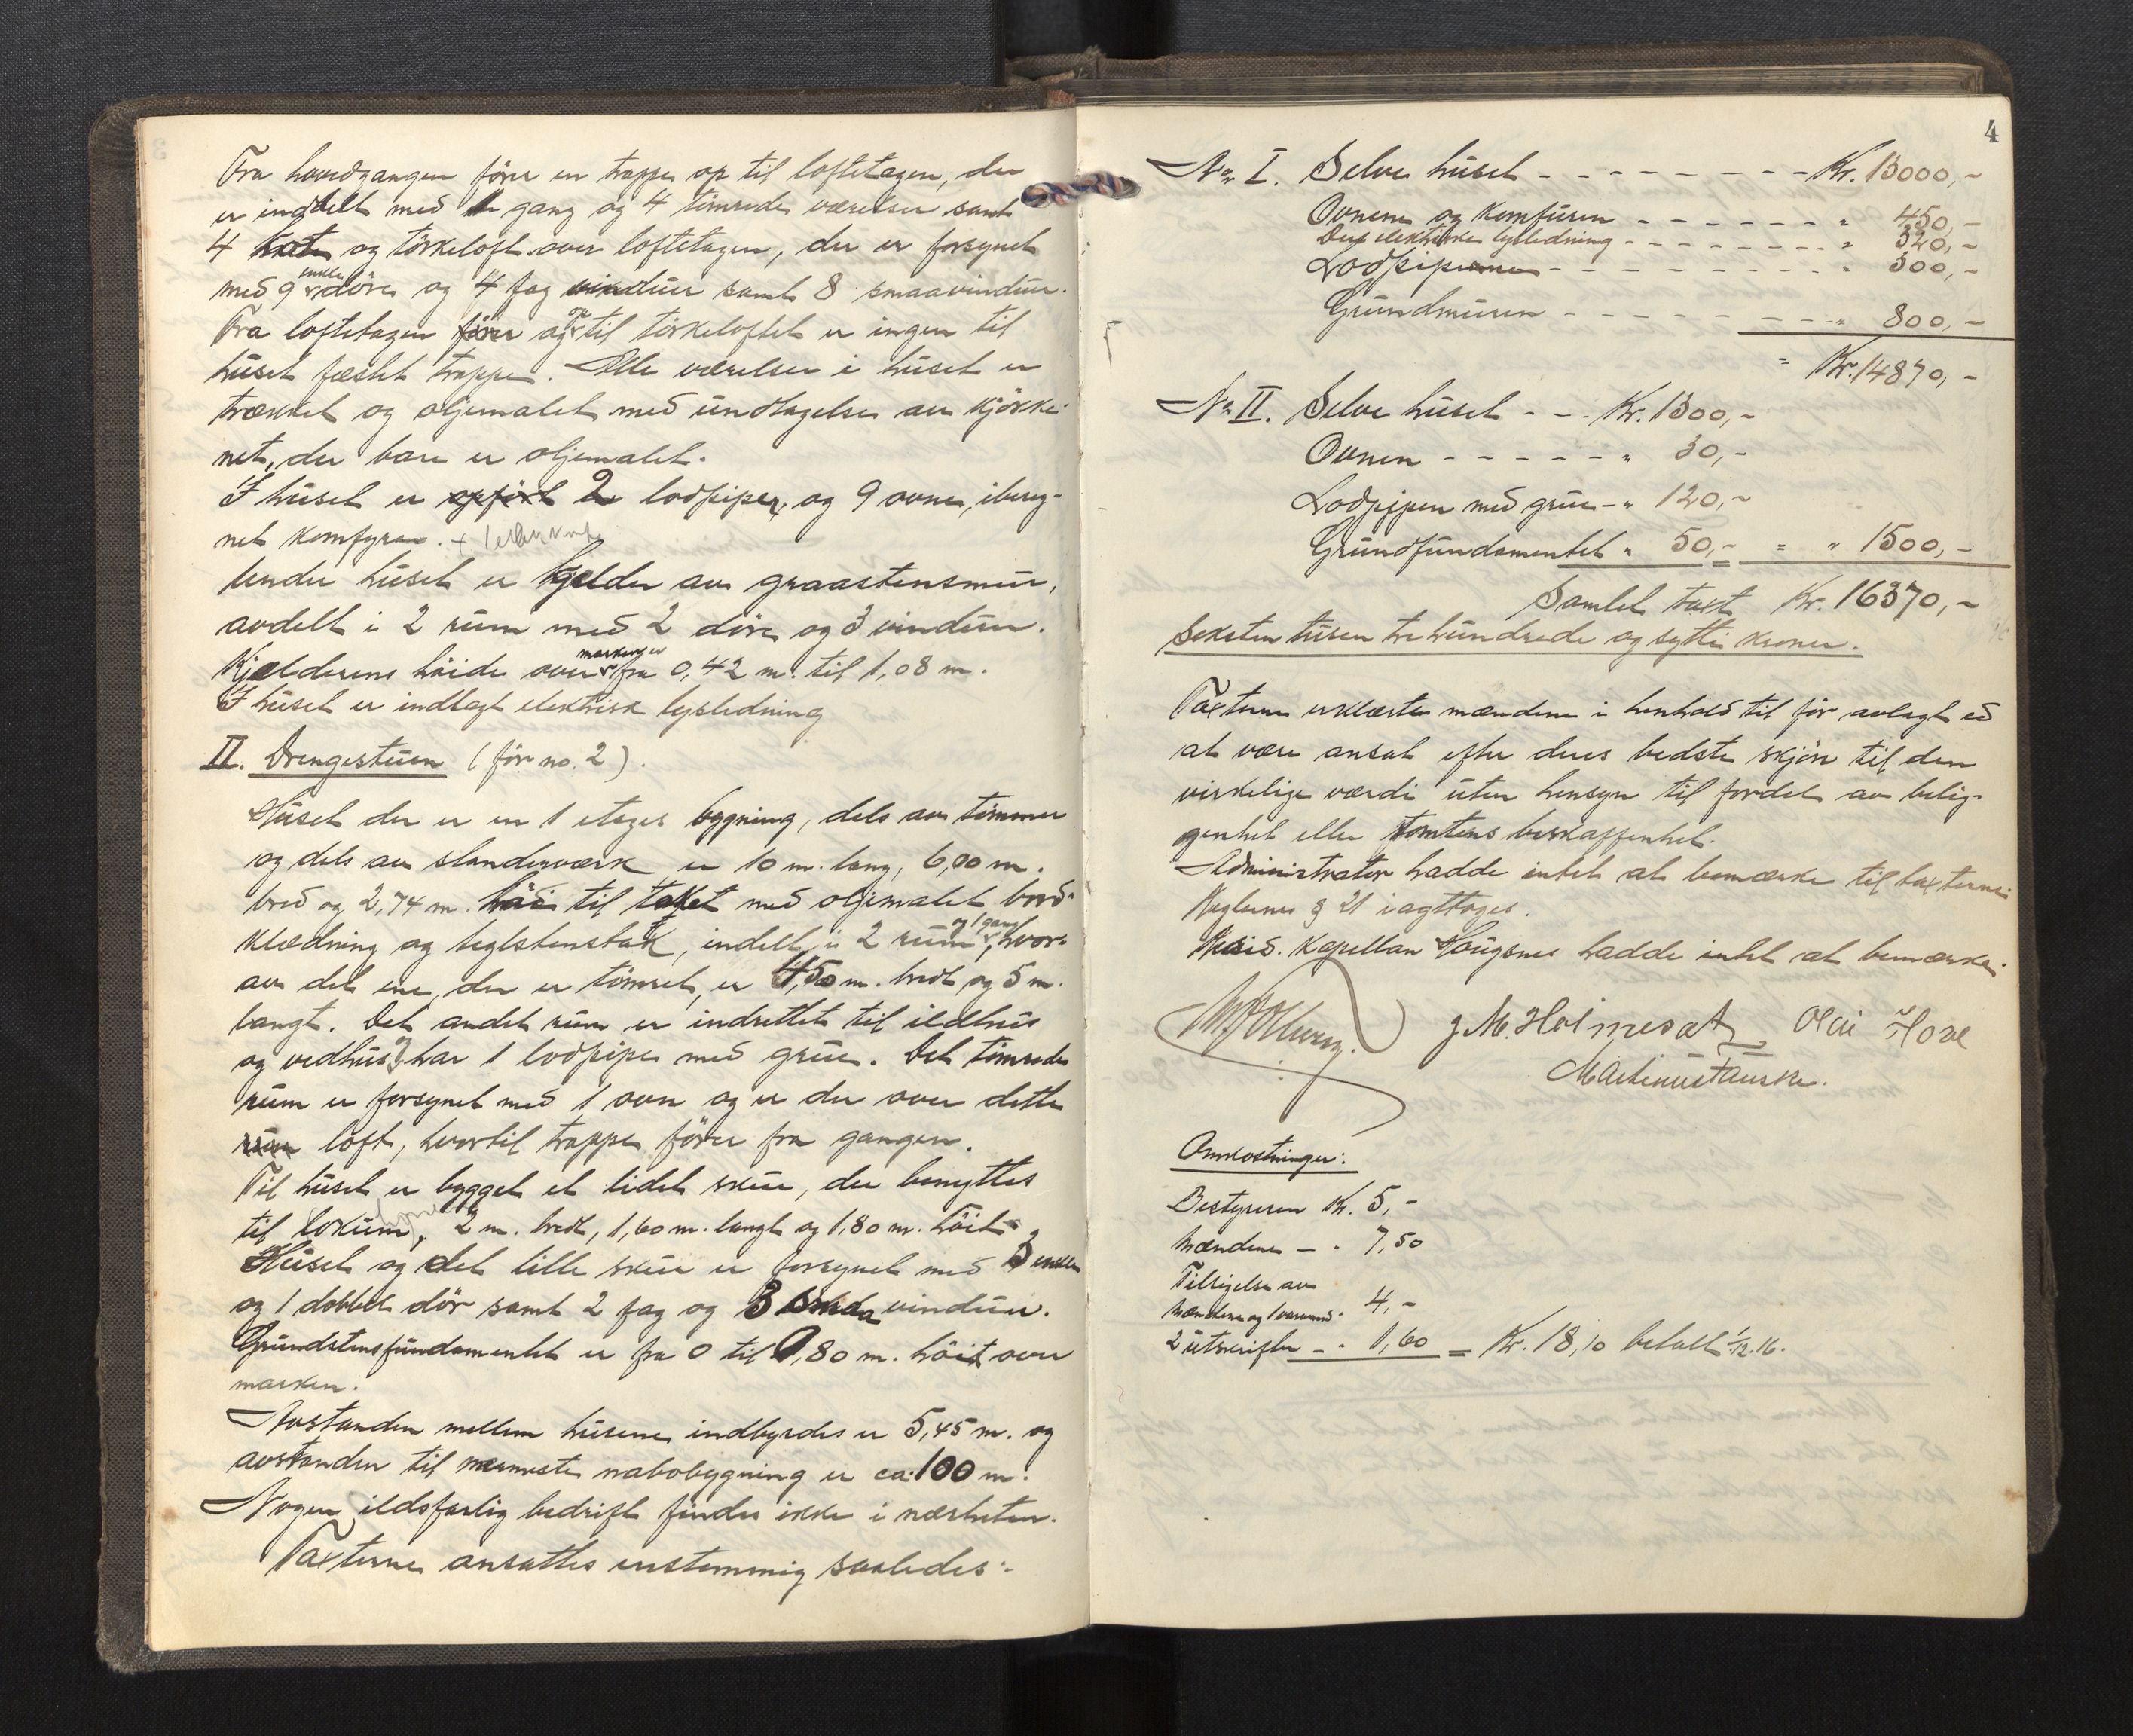 Fra hovedgangen fører en trappe op til loftetagen, der
er inddelt med 1 gang og 4 tømrede værelser samt
4 koter og tørkeloft over loftetagen, der er forsynet
med 9 enkle døre og 4 fag vinduer samt 8 smaavinduer.
Fra loftetagen og op til tørkeloftet er ingen til
huset fæstet trappe. Alle værelser i huset er
trækket og oljemalet med undtagelse av kjøkke-
net, der bare er oljemalet.
I huset er opført 2 lodpiper, og 9 ovne, ibereg-
net komfyren.
Under huset er kjelder av graastensmur,
avdelt i 2 rum med 2 døre og 3 vinduer.
Kjælderens høide over marken er fra 0,42 m. til 1,08 m.
I huset er indlagt elektrisk lysledning
II. Drengestuen (før no. 2).
Huset der er en 1 etages bygning, dels av tømmer
og dels av standerværk er 10 m. lang, 6,00 m.
bred og 2,74 m. høi til taket med oljemalet bord-
klædning og teglstenstak, indelt i 2 rum og 1 gang, hvor-
av det ene, der er tømret, er 4,50 m. bredt og 5 m.
langt. Det andet rum er indrettet til ildhus
og vedhus og har 1 lodpipe med grue. Det tømrede
rum er forsynet med 1 ovn og er der over dette
rum loft, hvortil trappe fører fra gangen.
Til huset er bygget et lidet skur, der benyttes
til lokum, 2 m. bredt, 1,60 m. langt og 1,80 m. høit.
Huset og det lille skur er forsynet med 3 enkle
og 1 dobbelt dør samt 2 fag og 3 smaa vinduer.
Grundstensfundamentet er fra 0 til 0,80 m. høit over
marken.
Avstanden mellem husene indbyrdes er 5,45 m. og
avstanden til nærmeste nabobygning er ca. 100 m.
Nogen ildsfarlig bedrift findes ikke i nærheten.
Taxterne ansattes enstemmig saaledes:
4
No. I. Selve huset - - - - - - - - Kr. 13000,-
Ovnene og komfuren - - - - - - " 450,-
Den elektriske lysledning - - - - - - - " 320,-
Lodpiperne - - - - - - - - " 300,-
Grundmuren - - - - - - - - " 800,-
= Kr. 14870,-
No. II. Selve huset - - - Kr. 1300,-
Ovnen - - - - - - " 30,-
Lodpipen med grue - " 120,-
Grundfundamentet " 50,- = " 1500,-
Samlet taxt Kr. 16370,-
Seksten tusen trehundrede og sytti kroner.
Taxterne erklærte mændene i henhold til før avlagt ed
at være ansat efter deres bedste skjøn til den
virkelige værdi uten hensyn til fordel av belig-
genhet eller tomtens beskaffenhet.
Administrator hadde intet at bemærke til taxterne.
Reglernes § 21 iagttoges.
Resid. Kapellan Hougsnes hadde intet at bemærke.
J. M. Holmesat Olai Hove
Omkostninger:
Bestyreren Kr. 5,-
Mændene - " 7,50
Tilsigelse av
mændene og 1 varamd. " 4,-
2 utskrifter - " 1,60 = Kr. 18,10 betalt 1/12.16.